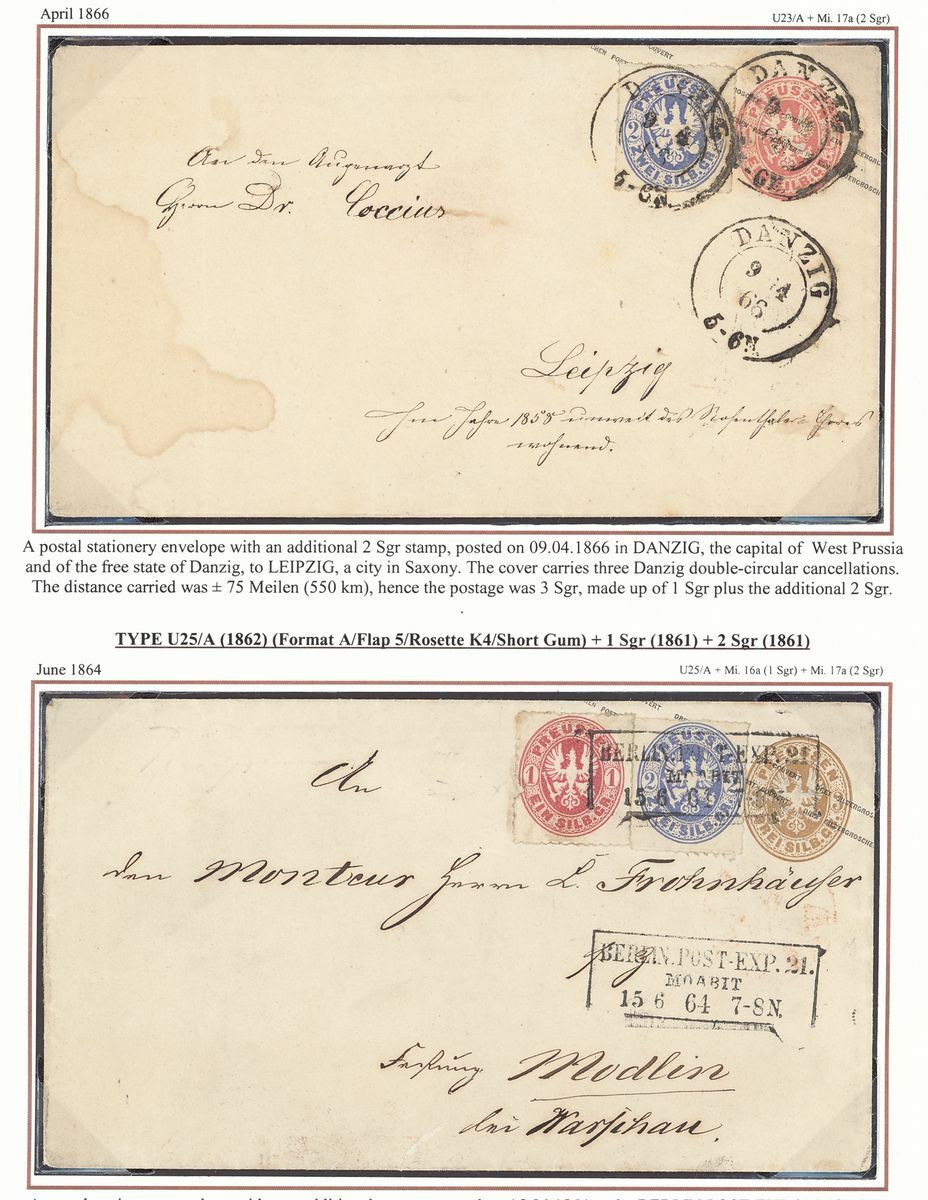 April 1866
U23/A + Mi. 17a (2 Sgr)
PREUSSEN
2
ZWEI SILB.GR.
DANZIG
5-6N
An den Augenarzt
Herrn Dr. Coccius
DANZIG
9 4
66
5-6N
Leipzig
Im Jahre 1858 unweit des Rosenthaler-Thores
wohnend.
A postal stationery envelope with an additional 2 Sgr stamp, posted on 09.04.1866 in DANZIG, the capital of West Prussia
and of the free state of Danzig, to LEIPZIG, a city in Saxony. The cover carries three Danzig double-circular cancellations.
The distance carried was ± 75 Meilen (550 km), hence the postage was 3 Sgr, made up of 1 Sgr plus the additional 2 Sgr.
TYPE U25/A (1862) (Format A/Flap 5/Rosette K4/Short Gum) + 1 Sgr (1861) + 2 Sgr (1861)
June 1864
U25/A + Mi. 16a (1 Sgr) + Mi. 17a (2 Sgr)
PREUSSEN
1 1
EIN SILB.GR.
PREUSSEN
2
ZWEI SILB.GR.
PREUSSEN
DREI SILB.GR.
BERLIN.POST-EXP.21.
MOABIT
15 6 64
An
den Monteur Herrn L. Frohnhäuser
BERLIN.POST-EXP. 21.
MOABIT
15 6 64 7-8N.
Festung Modlin
bei Warschau.